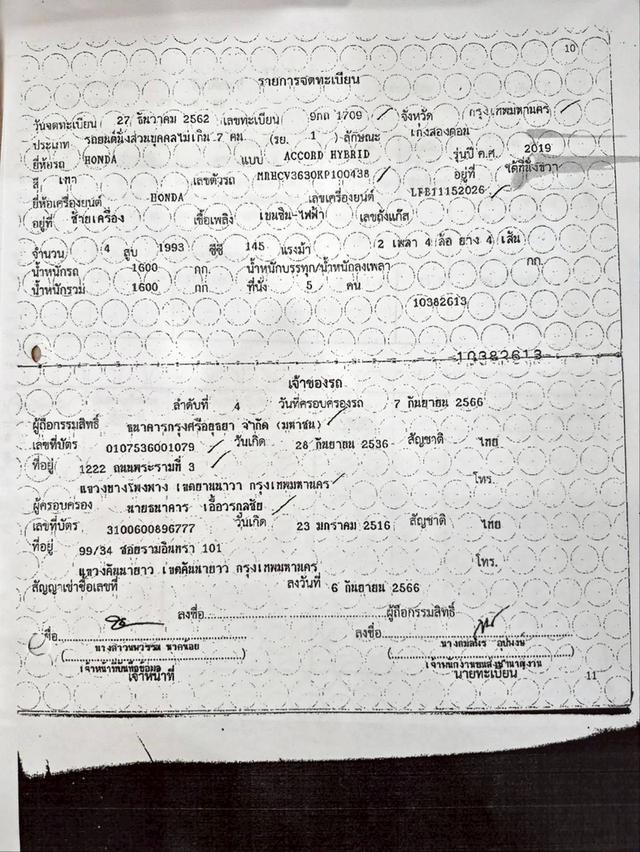 10
รายการจดทะเบียน
วันจดทะเบียน 27 ธันวาคม 2562 เลขทะเบียน 9กถ 1709 จังหวัด กรุงเทพมหานคร
ประเภท รถยนต์นั่งส่วนบุคคลไม่เกิน 7 คน (รย. 1 ) ลักษณะ เก๋งสองตอน
ยี่ห้อรถ HONDA แบบ ACCORD HYBRID รุ่นปี ค.ศ. 2019
สี เทา เลขตัวรถ MRHCV3630KP100438 อยู่ที่ ใต้ที่นั่งขวา
ยี่ห้อเครื่องยนต์ HONDA เลขเครื่องยนต์ LFB11152026
อยู่ที่ ซ้ายเครื่อง เชื้อเพลิง เบนซิน-ไฟฟ้า เลขถังแก๊ส
จำนวน 4 สูบ 1993 ซีซี 145 แรงม้า 2 เพลา 4 ล้อ ยาง 4 เส้น
น้ำหนักรถ 1600 กก. น้ำหนักบรรทุก/น้ำหนักลงเพลา กก.
น้ำหนักรวม 1600 กก ที่นั่ง 5 คน
10382613
10382613
เจ้าของรถ
ลำดับที่ 4 วันที่ครอบครองรถ 7 กันยายน 2566
ผู้ถือกรรมสิทธิ์ ธนาคารกรุงศรีอยุธยา จำกัด (มหาชน)
เลขที่บัตร 0107536001079 วันเกิด 28 กันยายน 2536 สัญชาติ ไทย
ที่อยู่ 1222 ถนนพระรามที่ 3
แขวงบางโพงพาง เขตยานนาวา กรุงเทพมหานคร โทร.
ผู้ครอบครอง นายธนาคาร เอื้อวรกุลชัย
เลขที่บัตร 3100600896777 วันเกิด 23 มกราคม 2516 สัญชาติ ไทย
ที่อยู่ 99/34 ซอยรามอินทรา 101
แขวงคันนายาว เขตคันนายาว กรุงเทพมหานคร โทร.
สัญญาเช่าซื้อเลขที่ ลงวันที่ 6 กันยายน 2566
ลงชื่อ ผู้ถือกรรมสิทธิ์
ชื่อ ลงชื่อ
เจ้าหน้าที่บันทึกข้อมูล
เจ้าหน้าที่ นายทะเบียน 11